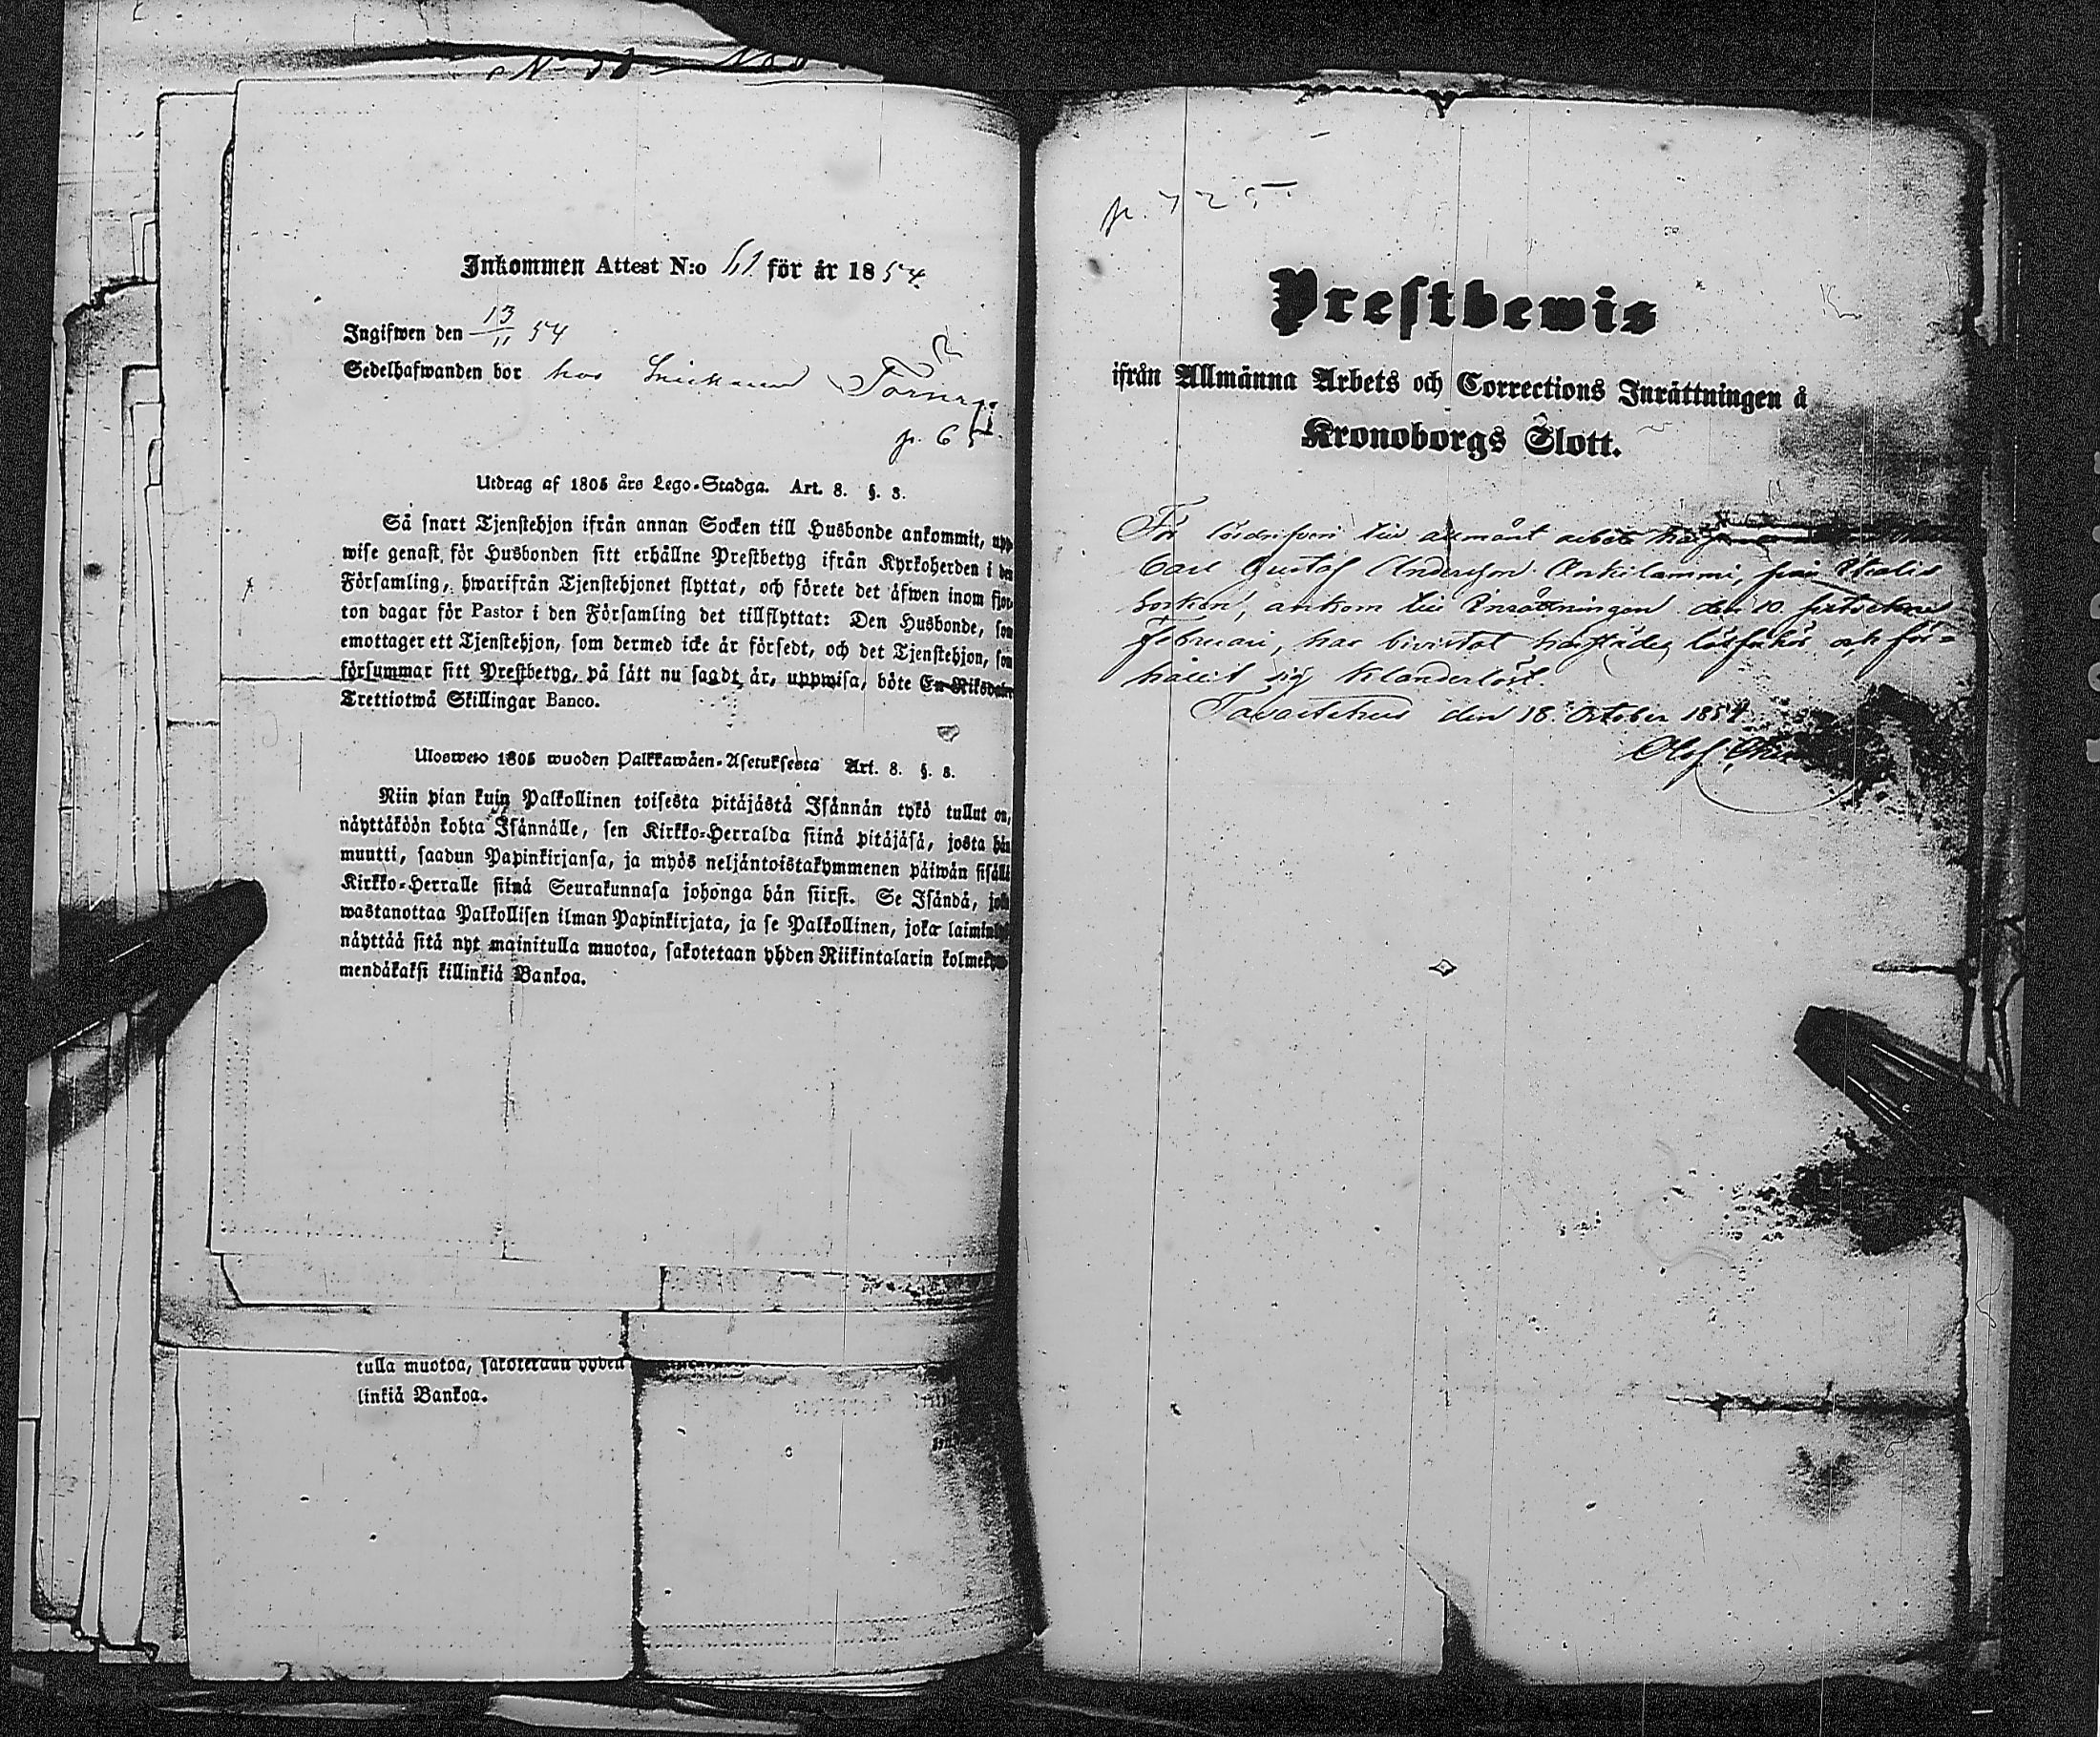 Inkommen Attest N:o 61 för år 1854.
Ingifwen den 13/11 54
Sedelhafwanden bor hos
p. 65
Utdrag af 1805 års Lego-Stadga. Art. 8. §. 3.
Så snart Tjenstehjon ifrån annan Socken till Husbonde ankommit, upp
wise genast för Husbonden sitt erhållne Prestbetyg ifrån Kyrkoherden i den
Församling, hwarifrån Tjenstehjonet flyttat, och förete det äfwen inom fjor-
ton dagar för Pastor i den Församling det tillflyttat: Den Husbonde, som
emottager ett Tjenstehjon, som dermed icke är försedt, och det Tjenstehjon, som
försummar sitt Prestbetyg, på sätt nu sagdt är, uppwisa, böte En Riksdaler
Trettiotwå Skillingar Banco.
Ulosweto 1805 wuoden Palkkawäen-Asetuksesta Art. 8. §. 3.
Niin pian kuin Palkollinen toisesta pitäjästä Isännän tykö tullut on,
näyttäköön kohta Isännälle, sen Kirkko-Herralda siinä pitäjäsä, josta hän
muutti, saadun Papinkirjansa, ja myös neljäntoistakymmenen päiwän sisällä
Kirkko-Herralle siinä Seurakunnasa johonga hän siirsi. Se Isändä, joka
wastanottaa Palkollisen ilman Papinkirjata, ja se Palkollinen, joka laiminlyö
näyttää sitä nyt mainitulla muotoa, sakotetaan yhden Riikintalarin kolmekym
mendäkaksi killinkiä Bankoa.
tulla muotoa, sakotetaan yhden
linkiä Bankoa.
p. 725
Prestbewis
ifrån Allmänna Arbets och Corrections Inrättningen å
Kronoborgs Slott.
För till allmänt arbete
Carl Gustaf Andersson från
Socken, ankom till Inrättningen den 10
Februari, har bivistat härstädes och för-
hållit sig klanderlöst.
Tavastehus den 18 October 1854
Olof